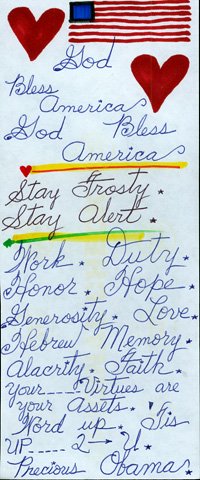 God
Bless
America
God Bless
America
Stay Frosty.
Stay Alert.
Work. Duty.
Honor. Hope.
Generosity. Love.
Hebrew Memory.
Alacrity. Faith.
Your.....Virtues are
your Assets.
Word up. 'Tis
UP.....2→U.
Precious Obama.